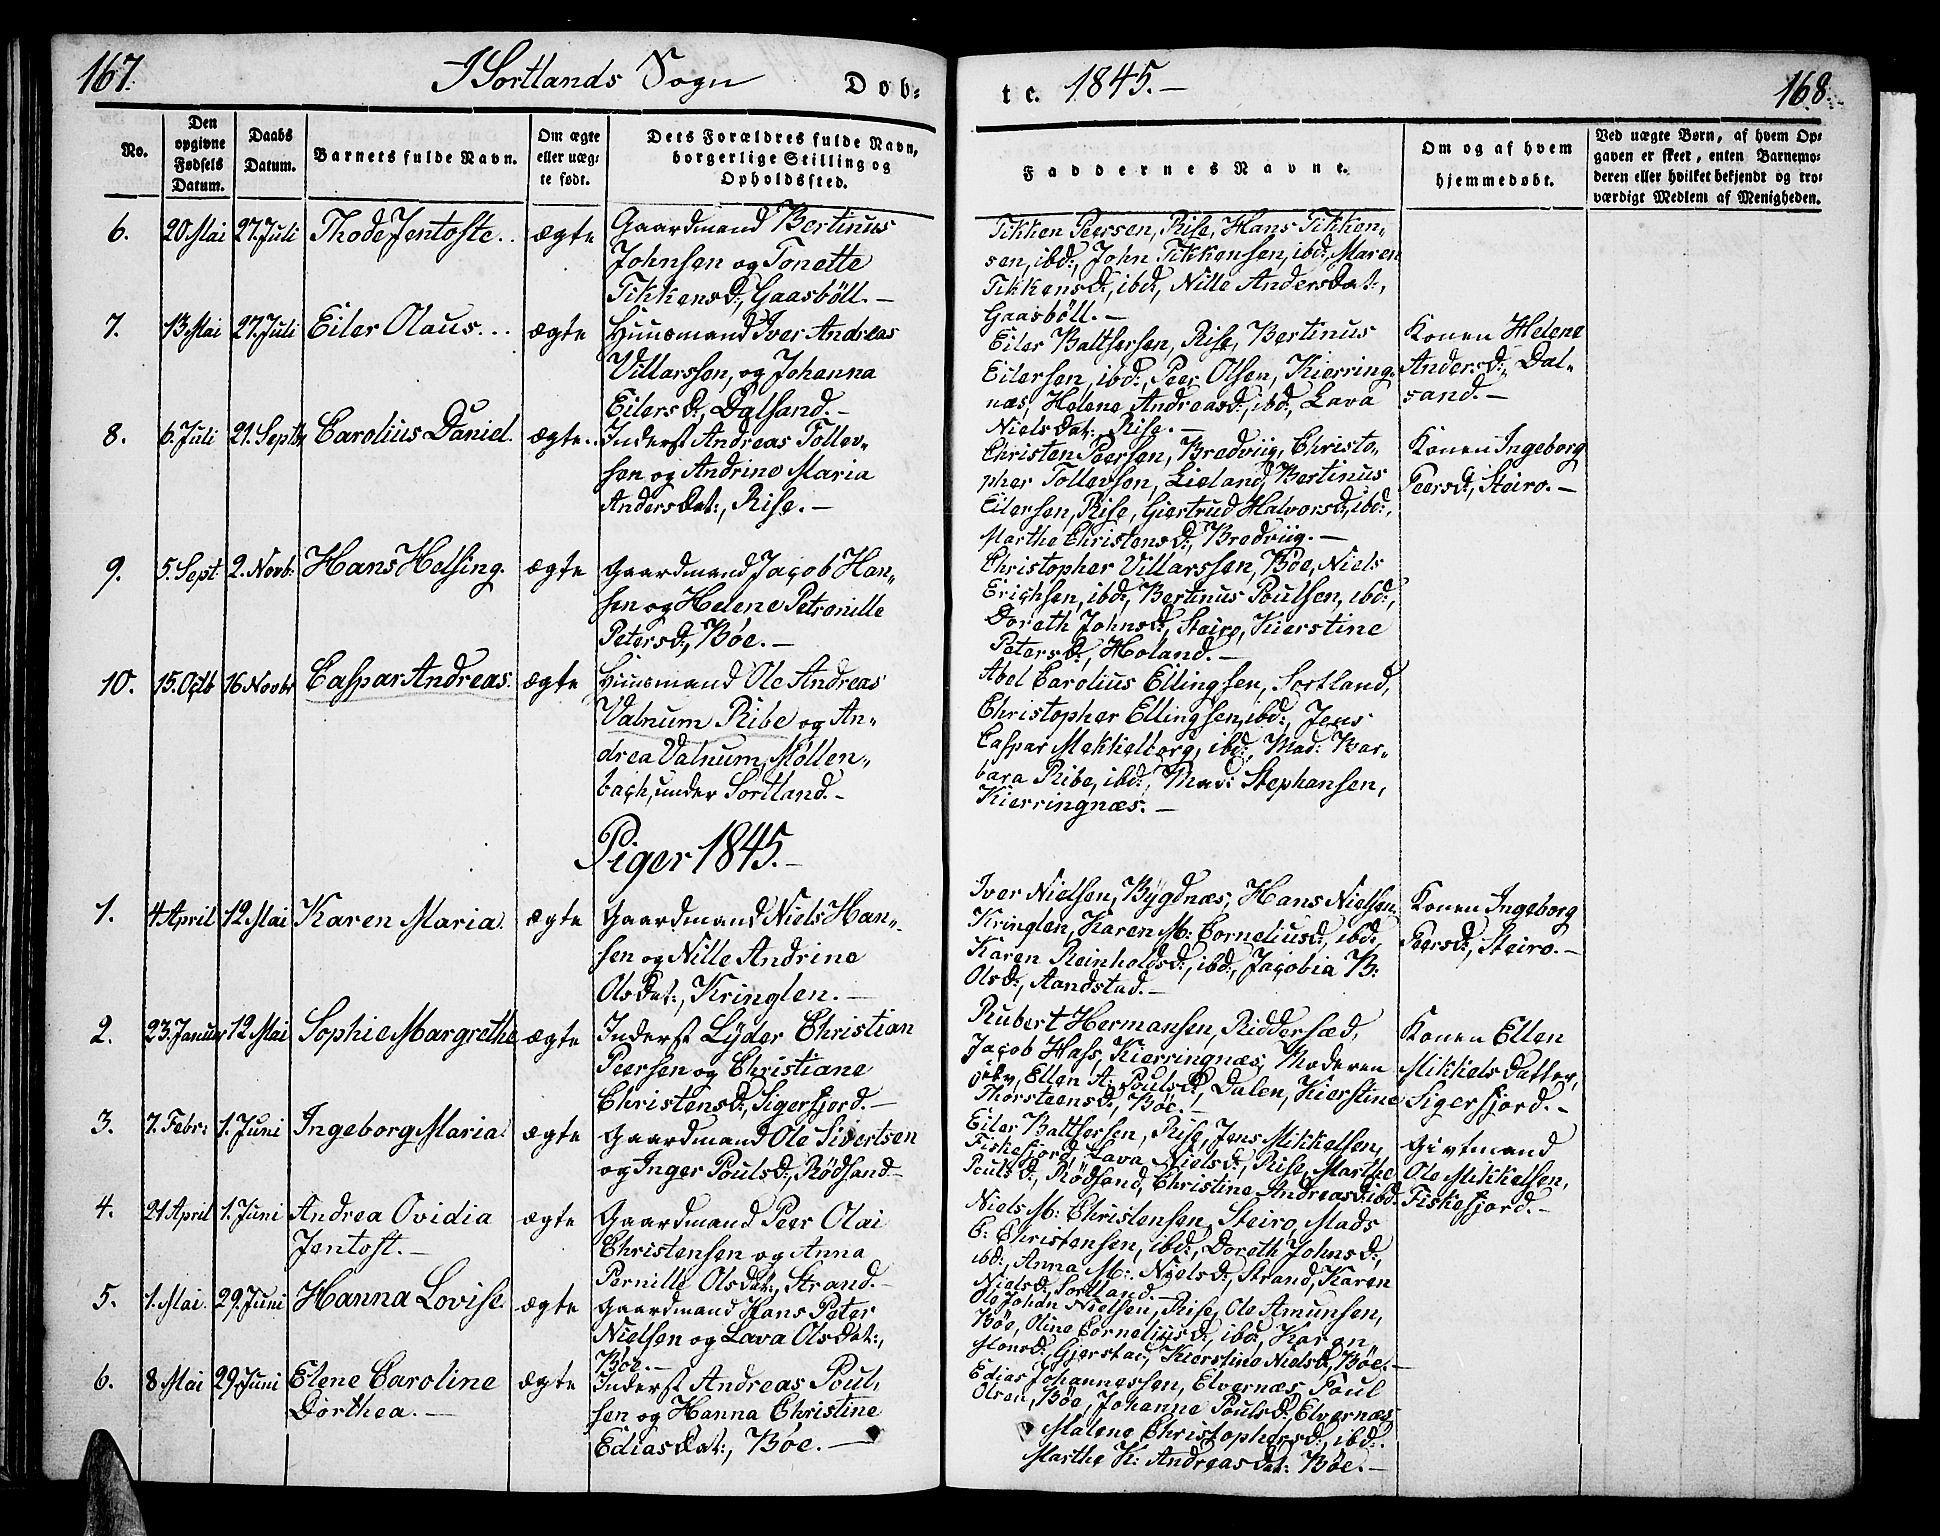 167.
I Sortlands Sogn
Døb-
te. 1845.-
168.
No.
Den
opgivne
Fødsels
Datum.
Daabs
Datum.
Barnets fulde Navn.
Om ægte
eller uæg-
te født.
Dets Forældres fulde Navn,
borgerlige Stilling og
Opholdssted.
Faddernes Navne.
Om og af hvem
hjemmedøbt.
Ved uægte Børn, af hvem Op-
gaven er skeet, enten Barnemo-
deren eller hvilket bekjendt og tro-
værdigt Medlem af Menigheden.
6.
20 Mai
27. Juli
Thode Jentofte..
ægte
Gaardmand Bertinus
Johnsen og Tonette
Tikkensd:, Gaasböll.-
Tikken Peersen, Rise, Hans Tikken-
sen, ibd:, John Tikkensen, ibd:, Maren
Tikkensd:, ibd:, Nille Andersdat:,
Gaasböll.-
7.
13. Mai
27. Juli
Eiler Olaus...
ægte
Huusmand Iver Andreas
Villarssen, og Johanna
Eilersd:, Dalsand.-
Eiler Baltsersen, Rise, Bertinus
Eilersen, ibd:, Peer Olsen, Kierring-
næs, Helene Andreasd:, ibd:, Lava
Nielsdat: Rise.-
Konen Helene
Andersd:, Dal-
sand.-
8.
6. Juli
21. Septbr
Carolius Daniel.
ægte..
Inderst Andreas Tollev-
sen og Andrine Maria
Andersdat:, Rise.-
Christen Peersen, Bredviig, Christo-
pher Tollevsen, Lieland, Bertinus
Eilersen, Rise, Giertrud Halvorsd:, ibd:,
Marthe Christensd:, Bredviig.-
Konen Ingeborg
Peersd:, Steiro.-
9.
5. Sept
2. Novb:
Hans Helsing.
ægte
Gaardmand Jacob Han-
sen og Helene Petronille
Petersd:, Böe.-
Christopher Villarssen, Böe, Niels
Erichsen, ibd:, Bertinus Poulsen, ibd:,
Doreth Johnsd:, Steiro, Kierstine
Petersd:, Holand.-
10.
15. Octb
16 Novbr
Caspar Andreas.
ægte
Huusmand Ole Andreas
Valnum Ribe og An-
drea Valnum, Möllen-
bach, under Sortland.-
Abel Carolius Ellingsen, Sortland,
Christopher Ellingsen, ibd:, Jens
Caspar Mekkelborg, ibd:, Mad: Bar-
bara Ribe, ibd:, Mad: Stephansen,
Kierringnæs.-
Piger 1845.-
1.
4 April
12 Mai
Karen Maria.
ægte
Gaardmand Niels Han-
sen og Nille Andrine
Olsdat:, Kringlen.-
Iver Nielsen, Bygdnæs, Hans Nielsen,
Kringlen, Karen M: Corneliusd:, ibd:,
Karen Reinholdsd:, ibd:, Jacobia B:
Olsd:, Aandstad.-
Konen Ingeborg
Peersd:, Steiro.-
2.
23. Januar
12 Mai
Sophie Margrethe
ægte
Inderst Lyder Christian
Peersen og Christiane
Christensd:, Sigerfjord.-
Rubert Hermansen, Riddersæd,
Jacob Hass, Kierringnæs, Moderen
selv, Ellen A: Poulsd:, Dalen, Kierstine
Thorsteensd:, Böe.-
Konen Ellen
Mikkels datter,
Sigerfjord.-
3.
7. Febr:
1. Juni
Ingeborg Maria.
ægte
Gaardmand Ole Sivertsen
og Inger Poulsd:, Rödsand-
Eiler Baltsersen, Rise, Jens Mikkelsen,
Fiskefjord, Lava Nielsd:, Rise, Marthe
Poulsd:, Rödsand, Christine Andreasd: ibd:
Givtmand
Ole Mikkelsen,
Fiskefjord.-
4.
21 April
1. Juni
Andrea Ovidia
Jentoft.-
ægte
Gaardmand Peer Olai
Christensen og Anna
Pernille Olsdat:, Strand.-
Niels M: Christensen, Steiro, Mads
C: Christensen, ibd:, Doreth Johnsd:,
ibd:, Anna M: Nielsd:, Strand, Karen
Nielsd:, Sortland.-
5.
1. Mai.
29. Juni
Hanna Lovise.
ægte
Gaardmand Hans Peter
Nielsen og Lava Olsdat:,
Böe.-
Ole Johan Nielsen, Rise, Ole Amunsen,
Böe, Oline Corneliusd:, ibd:, Karen
Monsd:, Gjerstad, Kierstine Nielsd:, Böe.-
6.
8 Mai
29. Juni
Elene Caroline
Dorthea.-
ægte
Inderst Andreas Poul-
sen og Hanna Christine
Ediasdat:, Böe.-
Edias Johannessen, Elvernæs, Poul
Olsen, Böe, Johanne Poulsd:, Elvernæs
Malene Christophersd:, ibd:
Marthe K: Andreasdat: Böe.-